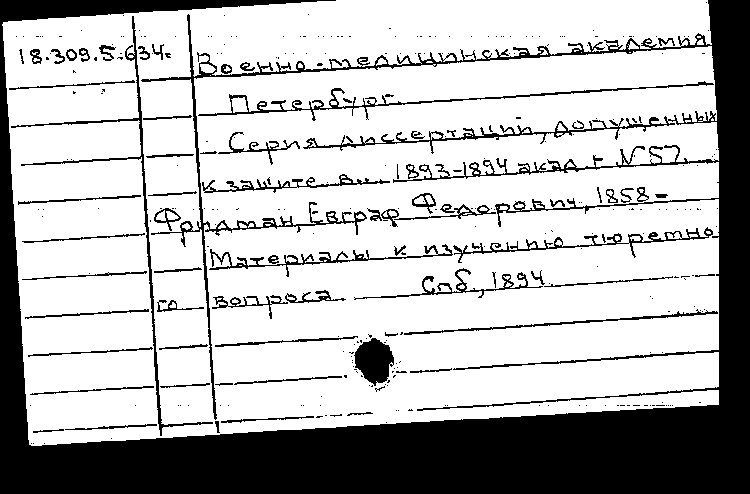 18.309.5.634. Военно-медицинская академия
Петербург.
Серия диссертаций, допущенных
к защите в... 1893-1894 акад. г. № 57.
Фридман, Евграф Федорович, 1858-
Материалы к изучению тюремно
го вопроса. Спб., 1894.